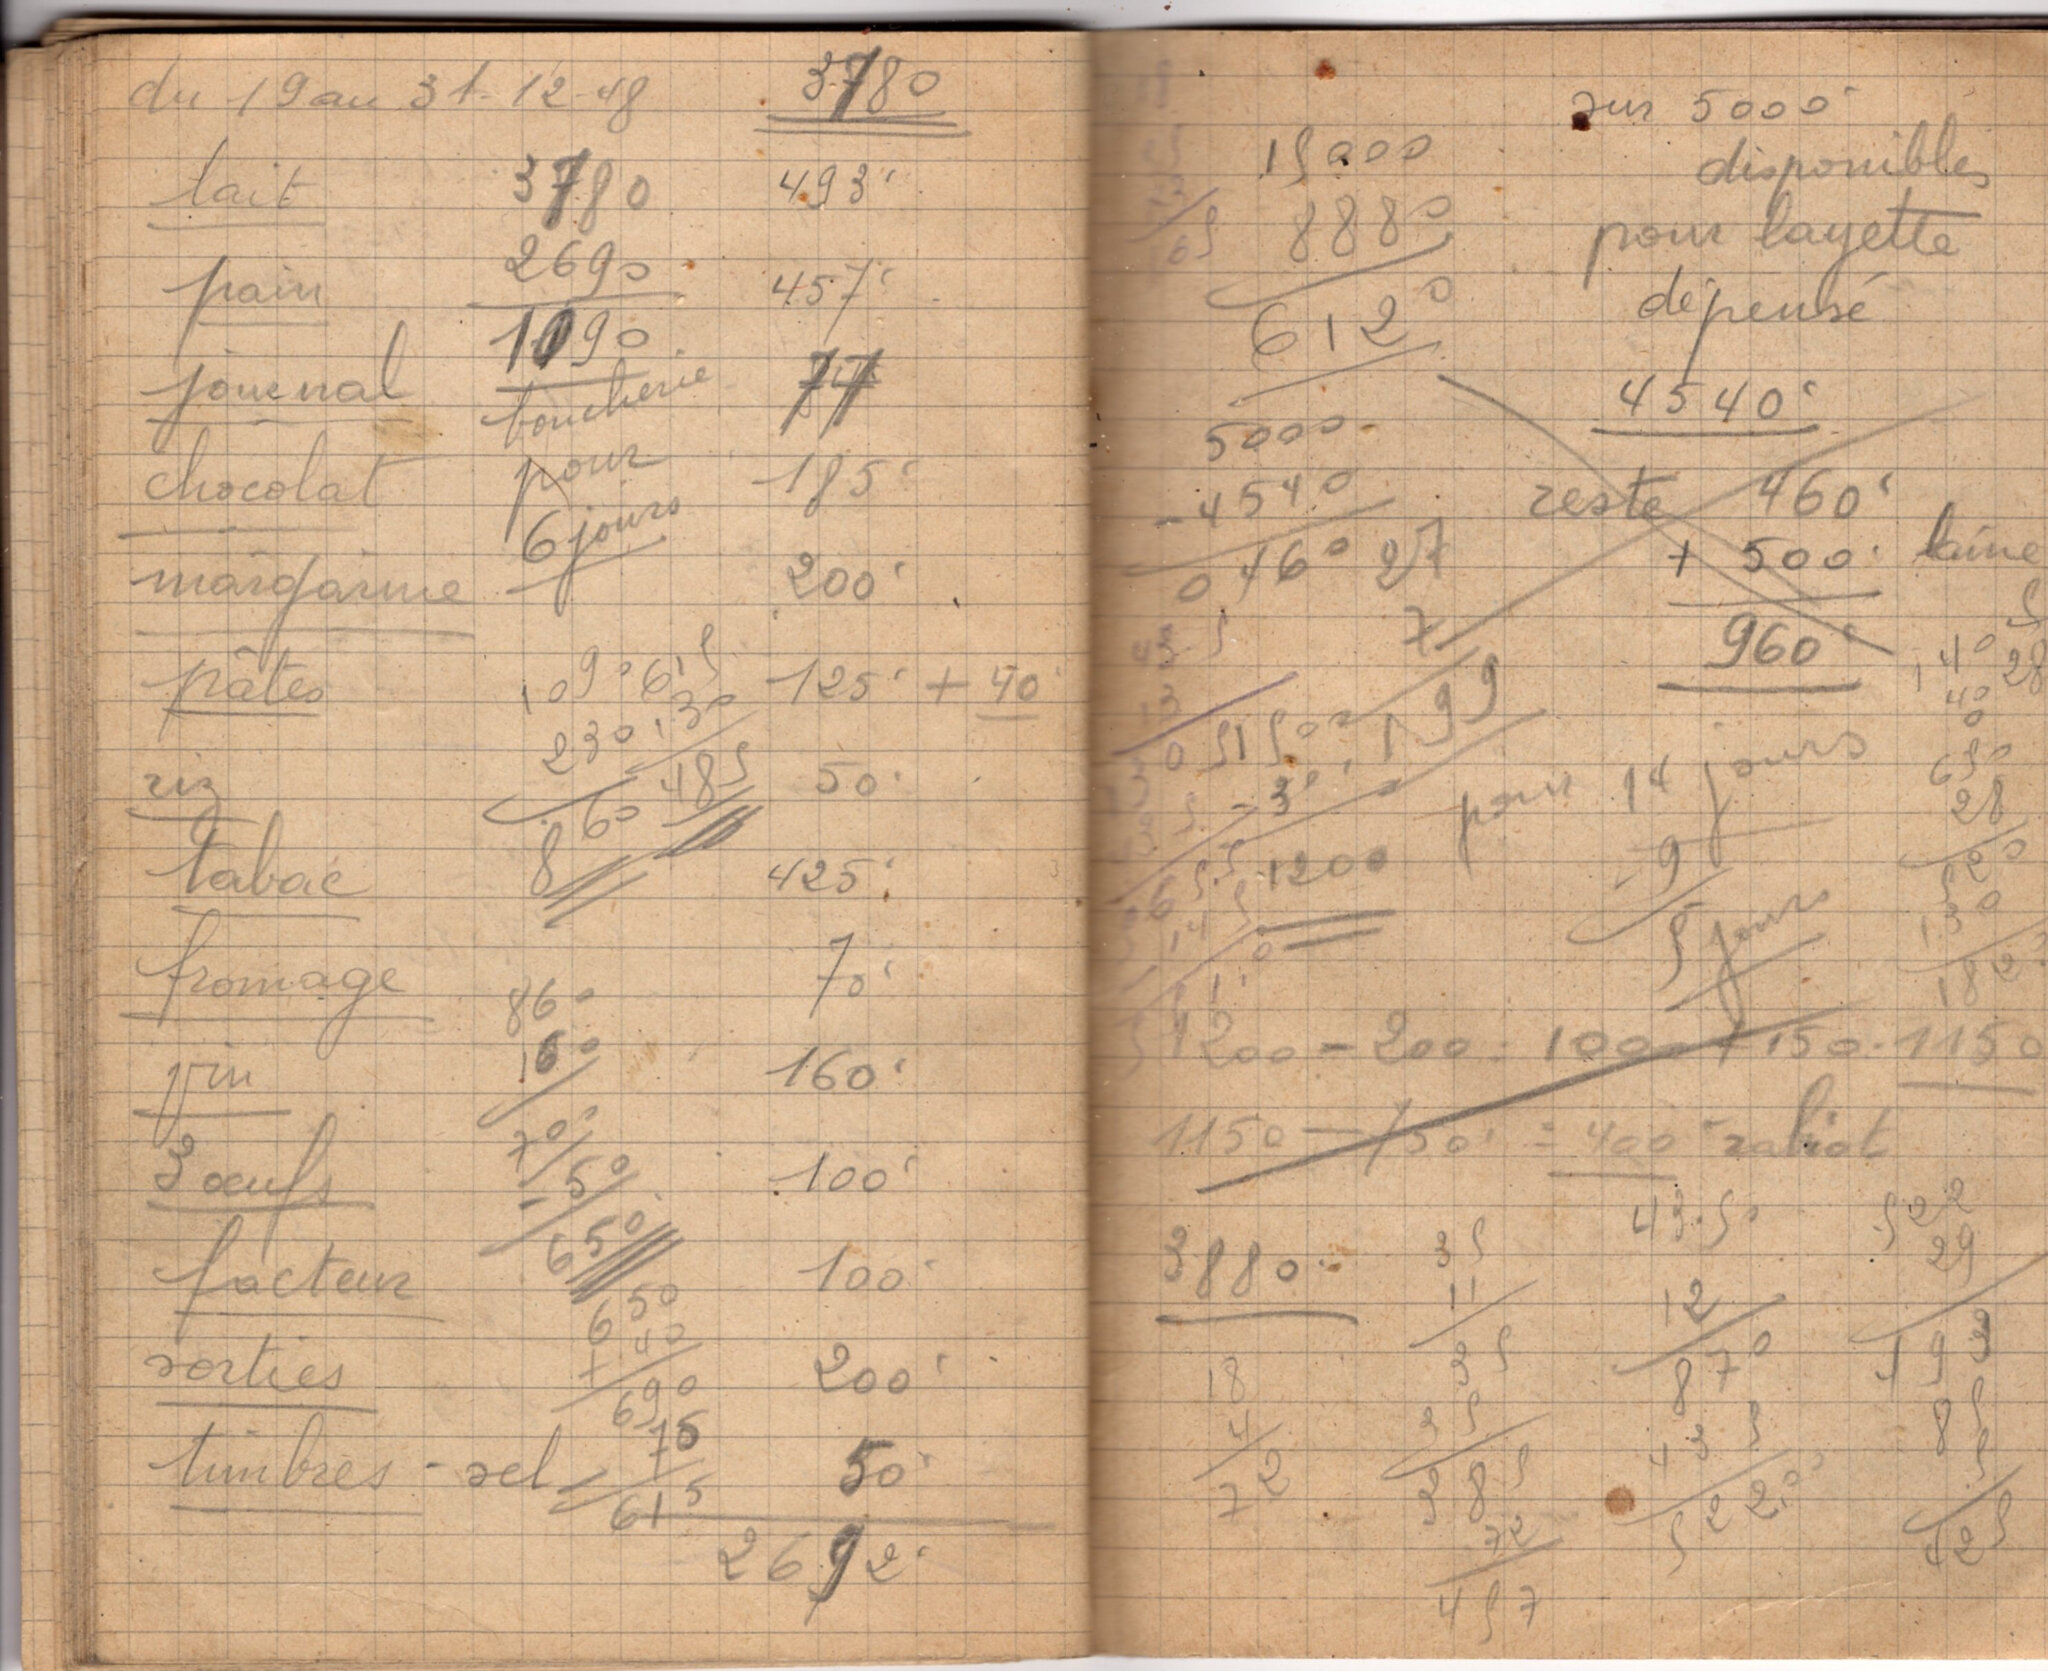 du 19 au 31-12-48 3780
lait 3780 493
pain 2690 457
journal 1090 77
boucherie
chocolat pour 185
6 jours
margarine 200
pâtes 125 + 40
1090 615
230 130
riz 485 50
860
tabac 425
fromage 70
860
vin 160 160
700
3 œufs 50 100
650
facteur 100
650
+ 40
sorties 690 200
75
timbres - sel 615 50
2692
sur 5000
disponibles
pour layette
dépensé
4540
reste 460
+ 500 laine
960
15000
8880
6120
5000
- 4540
0460 27
7
1200
pour 14 jours
- 9
5 jours
140
28
650
28
520
130
182
1200 - 200 = 1000 + 150 = 1150
1150 - 750 = 400 rabiot
3880
18
4
72
35
11
35
35
385
72
457
43.50
12
870
435
522.0
522
29
193
85
5
425